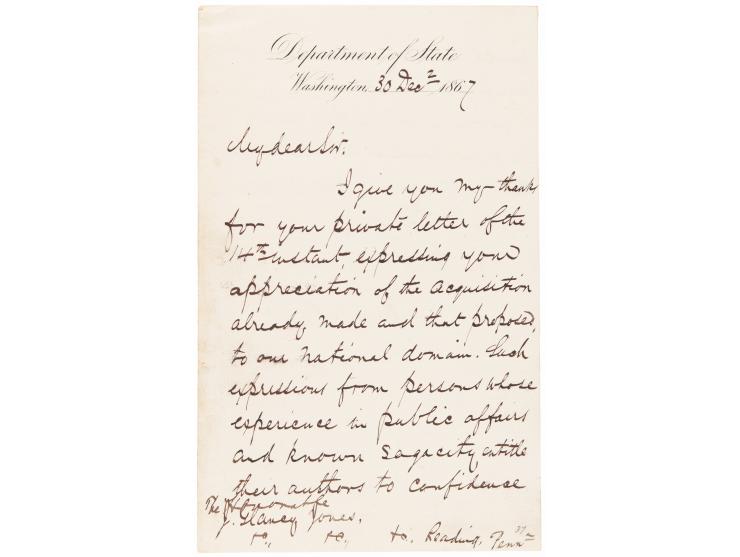 Department of State
Washington, 30 Dec 1867
My dear Sir.
I give you my thanks
for your private letter of the
14th instant, expressing your
appreciation of the acquisition
already made and that proposed,
to our national domain. Such
expressions from persons whose
experience in public affairs
and known sagacity entitle
their authors to confidence
The Honorable
J. Glancy Jones,
&c, &c, &c. Reading, Penna